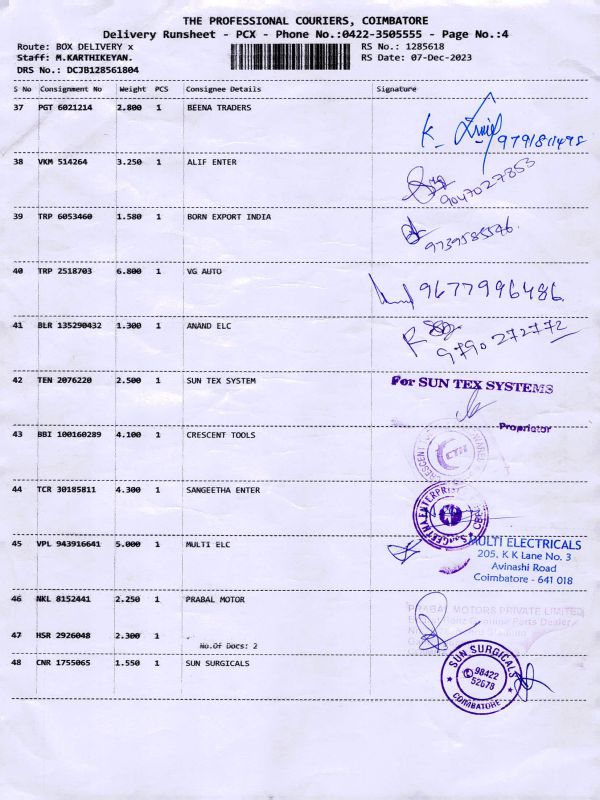 THE PROFESSIONAL COURIERS, COIMBATORE
Delivery Runsheet - PCX - Phone No.:0422-3505555 - Page No.:4
Route: BOX DELIVERY x RS No.: 1285618
Staff: M.KARTHIKEYAN. RS Date: 07-Dec-2023
DRS No.: DCJB128561804
S No Consignment No Weight PCS Consignee Details Signature
37 PGT 6021214 2.800 1 BEENA TRADERS
K.
9791811498
38 VKM 514264 3.250 1 ALIF ENTER
9047027853
39 TRP 6053460 1.580 1 BORN EXPORT INDIA
9739585546.
40 TRP 2518703 6.800 1 VG AUTO
9677996486.
41 BLR 135290432 1.300 1 ANAND ELC
9790272772
42 TEN 2076220 2.500 1 SUN TEX SYSTEM
For SUN TEX SYSTEMS
Proprietor
43 BBI 100160289 4.100 1 CRESCENT TOOLS
CTH
44 TCR 30185811 4.300 1 SANGEETHA ENTER
SANGEETHA ENTERPRIS
45 VPL 943916641 5.000 1 MULTI ELC
MULTI ELECTRICALS
205, K K Lane No. 3
Avinashi Road
Coimbatore - 641 018
46 NKL 8152441 2.250 1 PRABAL MOTOR
PRABAL MOTORS PRIVATE LIMITED
47 HSR 2926048 2.300 1
No.Of Docs: 2
48 CNR 1755065 1.550 1 SUN SURGICALS
SUN SURGICALS
98422
52678
COIMBATORE